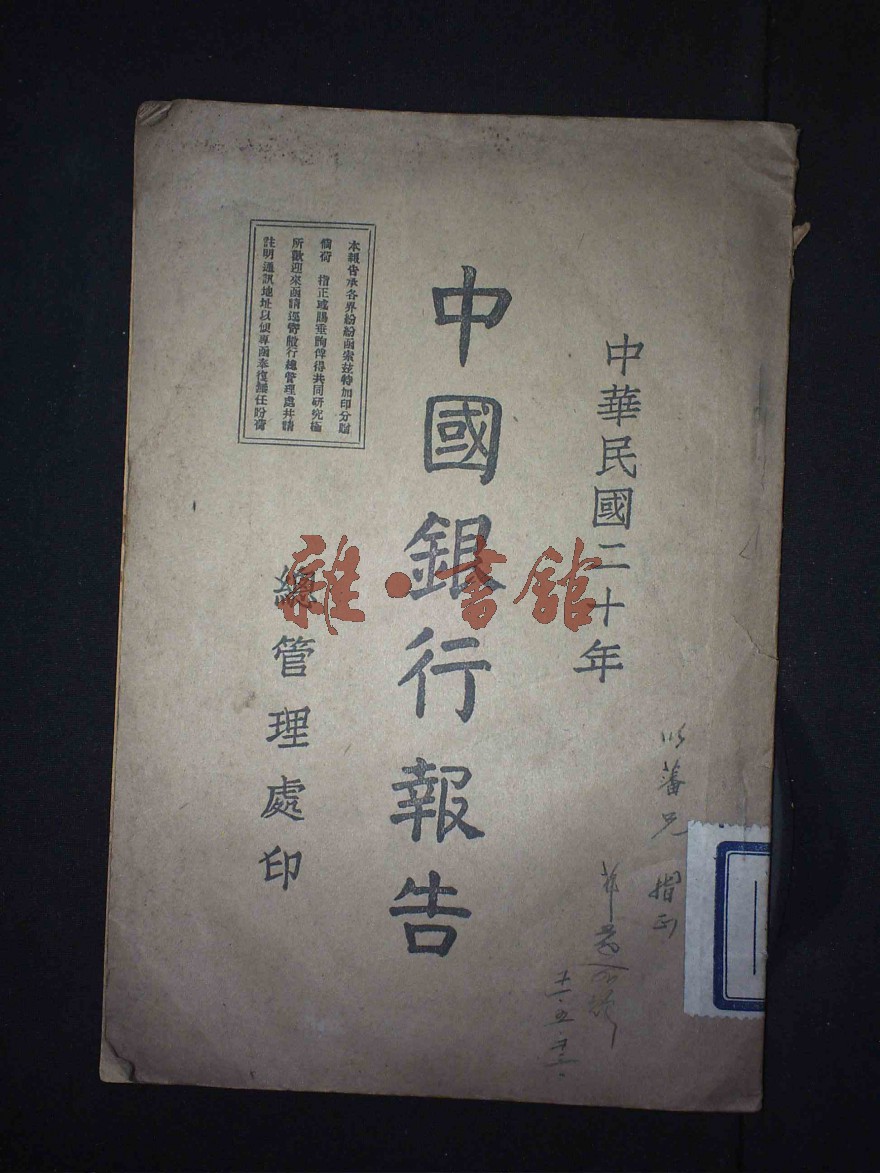 中華民國二十年
中國銀行報告
總管理處印
本報告承各界紛紛函索茲特加印分贈
倘荷 指正或賜垂詢俾得共同研究極
所歡迎來函請逕寄敝行總管理處并請
註明通訊地址以便專函奉復無任盼荷
以藩兄 指正
雜·書館